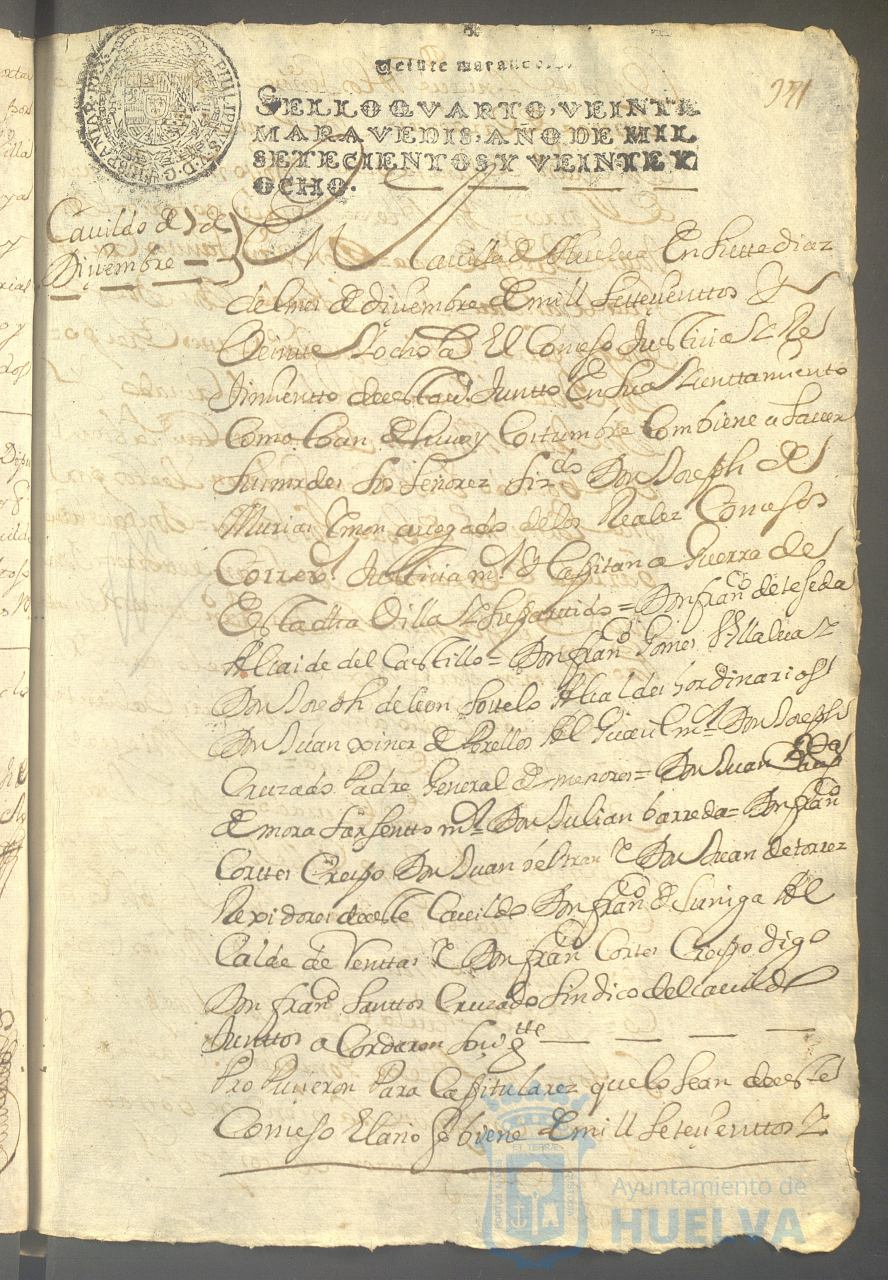 PHILIPPVS V D G HISPANIAR REX
Veinte marauedis.
SELLO QVARTO, VEINTE
MARAVEDIS, AÑO DE MIL
SETECIENTOS Y VEINTE Y
OCHO.
341
Cavildo de 7 de
Diziembre
En la villa de Huelva En siette dias
del mes de diziembre de mill settezienttos &
Veintte y ocho as El Conzejo Justicia y Re
Jimientto de esta Va Juntto En su ayunttamiento
Como lo an de huso y Costumbre Combiene a saver
sus mrdes los señores Lizdo Don Joseph de
Murias avogado de los Reales Consejos
Correxor Justicia mr y Cappitan a Guerra de
Esta dha Villa y su partido = Don franco de tejeda
Alcaide del Castillo = Don franco Gomes Villalva y
Don Joseph de leon sottelo Alcaldes hordinarios
Don Juan ximes de Morellos Alguazil mr = Don Joseph
Cruzado Padre General de menores = Don Juan
de mora sarjentto mr = Don Julian barreda = Don franco
Corttes Crespo Don Juan beltran y Don Juan de torres
Rexidores de este Cavildo Don franco de suniga Al
Calde de Venttas y Don franco Cortes Crespo digo
Don franco santtos Cruzado sindico del cavildo
Junttos a Cordaron lo sigtte
Propusieron Para Cappitulares que lo sean de este
Consejo El año qe biene de mill setezienttos y
Ayuntamiento de
HUELVA